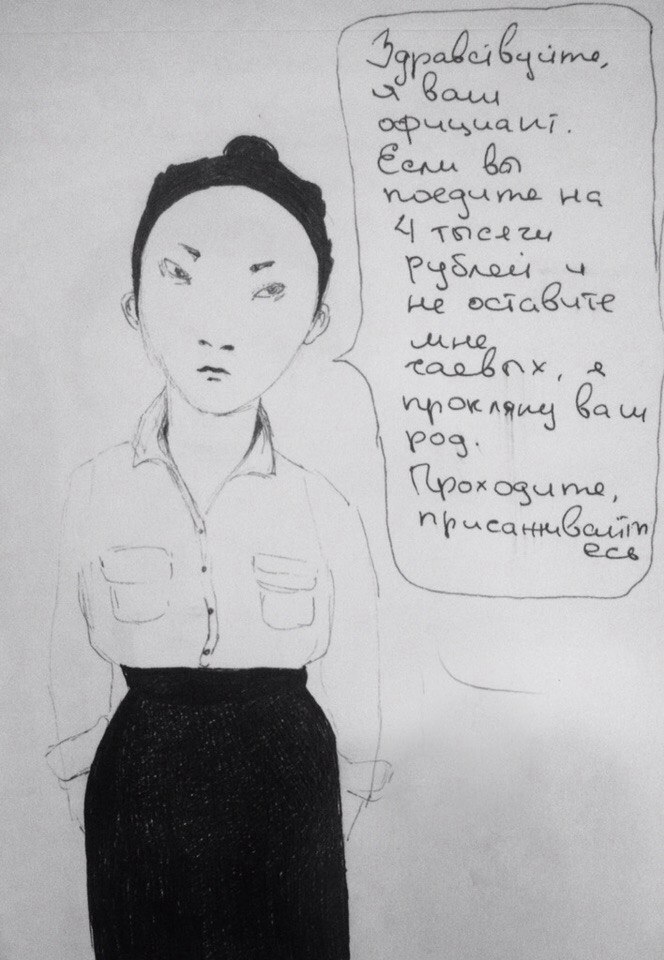 Здравствуйте,
я ваш
официант.
Если вы
поедите на
4 тысячи
рублей и
не оставите
мне
чаевых, я
прокляну ваш
род.
Проходите,
присаживайт
есь